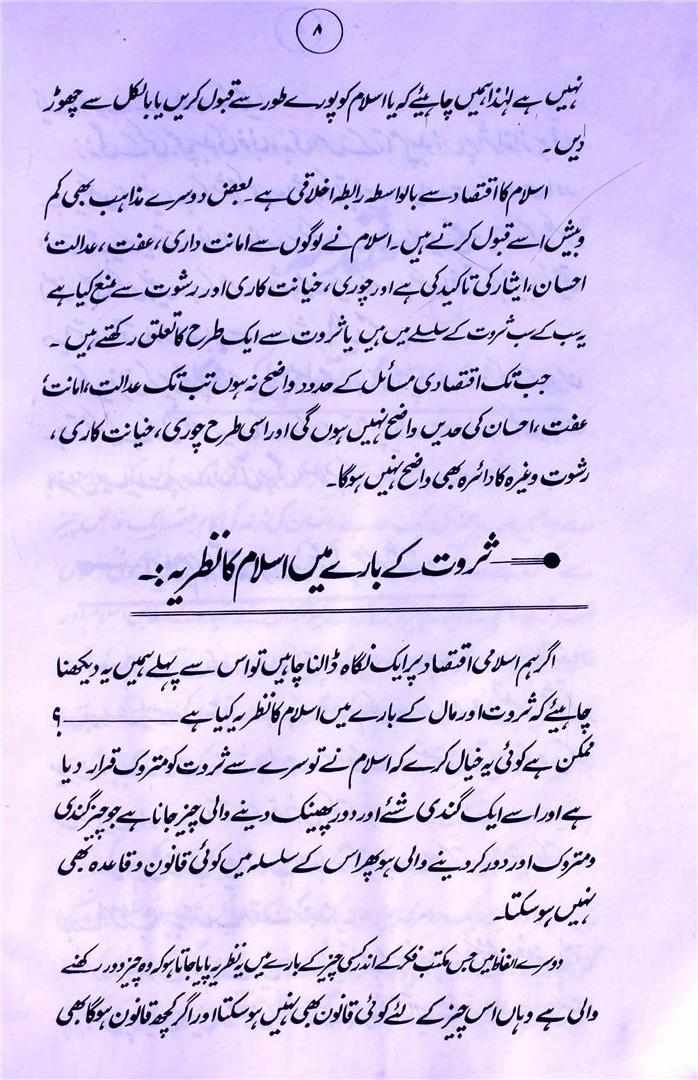 ۸
نہیں ہے لہٰذا ہمیں چاہیئے کہ یا اسلام کو پورے طور سے قبول کریں یا بالکل سے چھوڑ
دیں ۔
اسلام کا اقتصاد سے بالواسطہ رابطہ اخلاقی ہے ۔ بعض دوسرے مذاہب بھی کم
و بیش اسے قبول کرتے ہیں ۔ اسلام نے لوگوں سے امانت داری ، عفت ، عدالت ،
احسان ، ایثار کی تاکید کی ہے اور چوری ، خیانت کاری اور رشوت سے منع کیا ہے
یہ سب کے سب ثروت کے سلسلے میں ہیں یا ثروت سے ایک طرح کا تعلق رکھتے ہیں ۔
جب تک اقتصادی مسائل کے حدود واضح نہ ہوں تب تک عدالت ، امانت ،
عفت ، احسان کی حدیں واضح نہیں ہوں گی اور اسی طرح چوری ، خیانت کاری ،
رشوت وغیرہ کا دائرہ بھی واضح نہیں ہوگا ۔
ثروت کے بارے میں اسلام کا نظریہ :۔
اگر ہم اسلامی اقتصاد پر ایک نگاہ ڈالنا چاہیں تو اس سے پہلے ہمیں یہ دیکھنا
چاہیئے کہ ثروت اور مال کے بارے میں اسلام کا نظریہ کیا ہے ــــــــــ ؟
ممکن ہے کوئی یہ خیال کرے کہ اسلام نے تو سرے سے ثروت کو متروک قرار دیا
ہے اور اسے ایک گندی شئے اور دور پھینک دینے والی چیز جانا ہے جو چیز گندی
و متروک اور دور کر دینے والی ہو پھر اس کے سلسلہ میں کوئی قانون و قاعدہ بھی
نہیں ہو سکتا ۔
دوسرے الفاظ میں جس مکتب فکر کے اندر کسی چیز کے بارے میں یہ نظریہ پایا جاتا ہو کہ وہ چیز دور رکھنے
والی ہے وہاں اس چیز کے لئے کوئی قانون بھی نہیں ہو سکتا اور اگر کچھ قانون ہوگا بھی